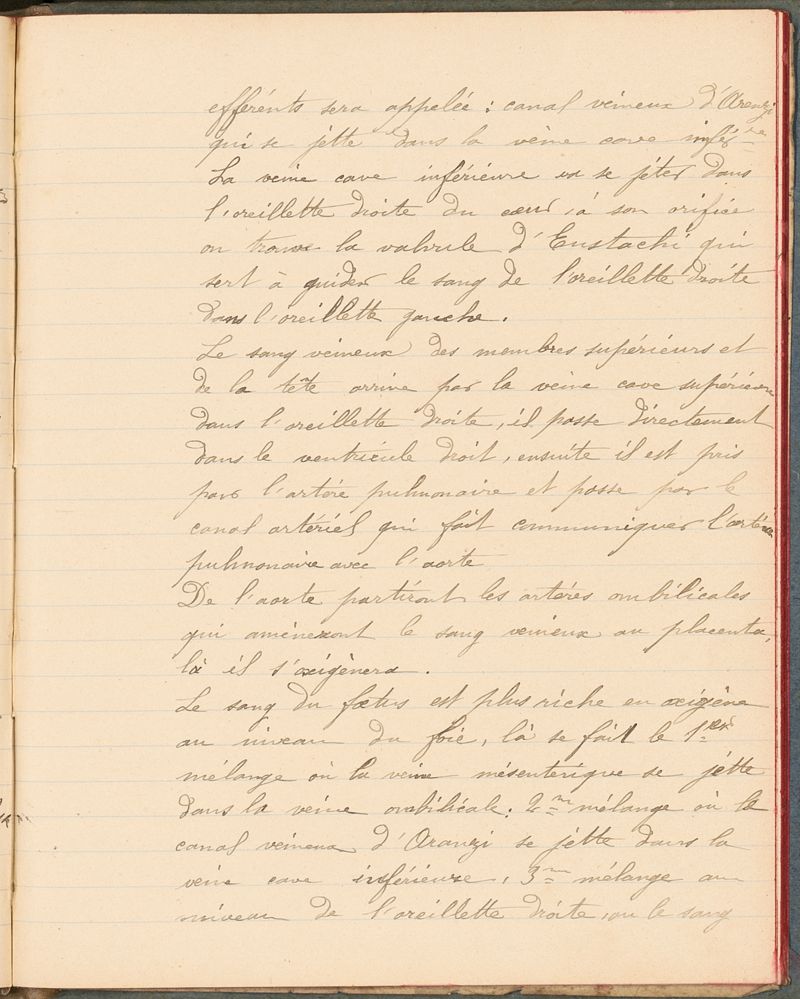 efférents sera appelée : canal veineux d'Aranzi
qui se jette dans la veine cave infér re
La veine cave inférieure va se jeter dans
l'oreillette droite du cœur, à son orifice
on trouve la valvule d'Eustachi qui
sert à guider le sang de l'oreillette droite
dans l'oreillette gauche.
Le sang veineux des membres supérieurs et
de la tête arrive par la veine cave supérieure
dans l'oreillette droite, il passe directement
dans le ventricule droit, ensuite il est pris
par l'artère pulmonaire et passe par le
canal artériel qui fait communiquer l'artère
pulmonaire avec l'aorte
De l'aorte partiront les artères ombilicales
qui amèneront le sang veineux au placenta,
là il s'oxigènera.
Le sang du fœtus est plus riche en oxigène
au niveau du foie, là se fait le 1er
mélange où la veine mésenterique se jette
dans la veine ombilicale. 2me mélange où le
canal veineux d'Aranzi se jette dans la
veine cave inférieure, 3me mélange au
niveau de l'oreillette droite, ou le sang